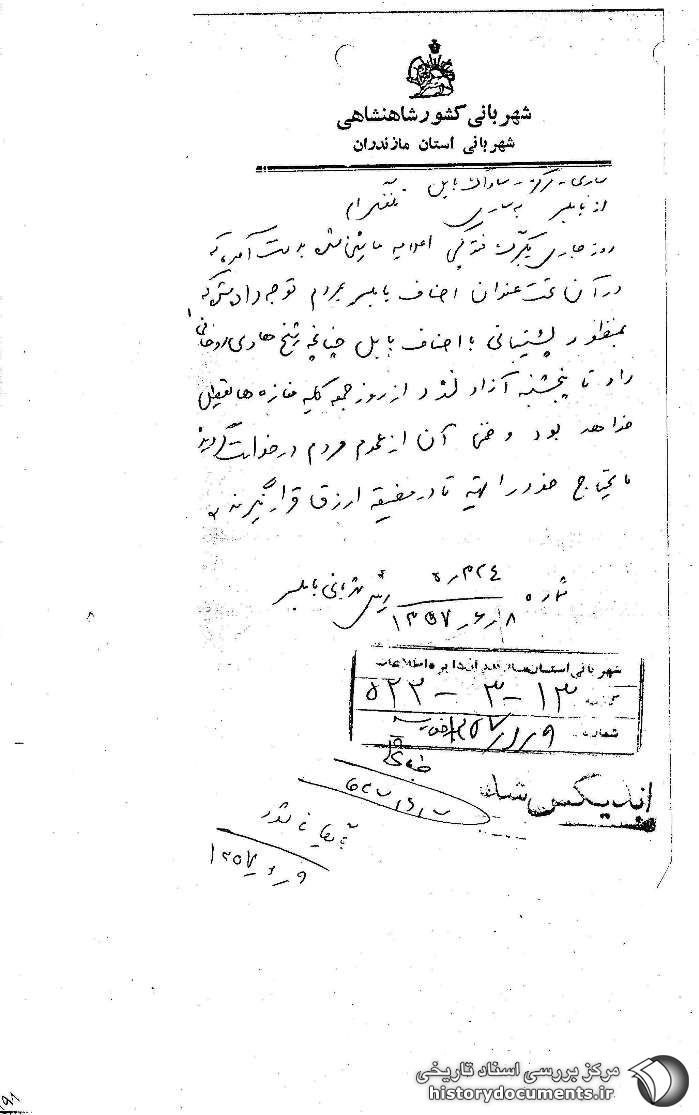 شهربانی کشور شاهنشاهی
شهربانی استان مازندران
ساری - مرکز - ساواک بابل
از بابلسر به ساری تلفنگرام
روز جاری یکبرگ فتوکپی اعلامیه ماشین شده بدست آمده که
در آن تحت عنوان اصناف بابلسر بمردم توجه داده شده که
بمنظور پشتیبانی با اصناف بابل چنانچه شیخ هادی روحانی
را تا پنجشنبه آزاد نشود از روز جمعه کلیه مغازه ها تعطیل
خواهد بود و ضمن آن از عموم مردم درخواست گردید
مایحتاج خود را تهیه تا در مضیقه ارزاق قرار نگیرند
شماره ۳۲۴ر۵ رئیس شهربانی بابلسر
۸ر۶ر۱۳۵۷
شهربانی استان مازندران دایره اطلاعات
۱۳-۳-۵۲۲
شماره
اندیکس شد
۹ر۶ر۱۳۵۷
مرکز بررسی اسناد تاریخی
historydocuments.ir